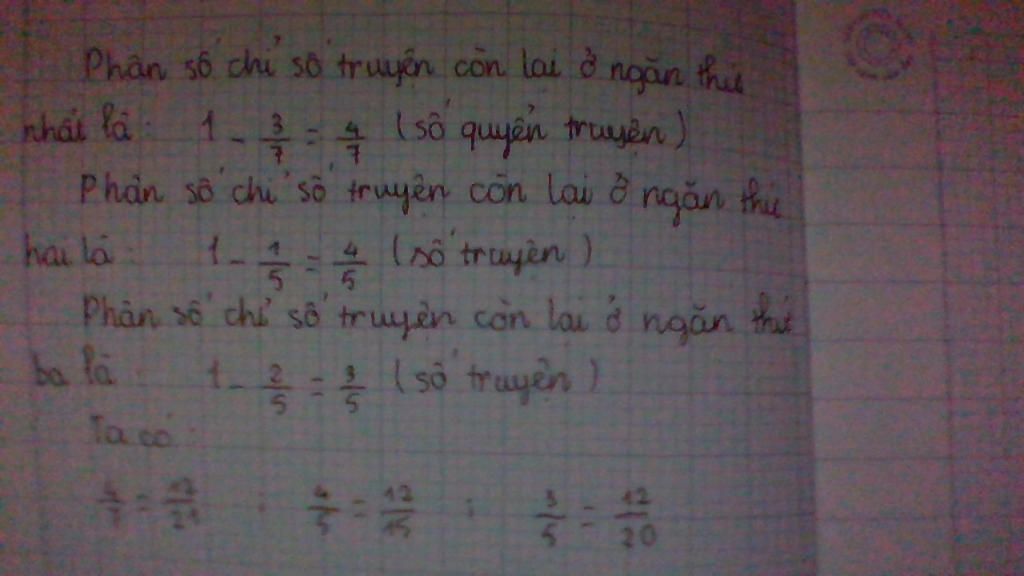 Phân số chỉ số truyện còn lại ở ngăn thứ
nhất là: 1 - 3/7 = 4/7 (số quyển truyện)
Phân số chỉ số truyện còn lại ở ngăn thứ
hai là: 1 - 1/5 = 4/5 (số truyện)
Phân số chỉ số truyện còn lại ở ngăn thứ
ba là: 1 - 2/5 = 3/5 (số truyện)
Ta có:
4/7 = 12/21 ; 4/5 = 12/15 ; 3/5 = 12/20